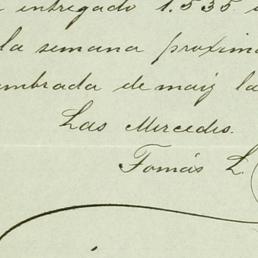 entregado 1.535
la semana proxim
mbrada de maiz la
Las Mercedes.
Tomás L.